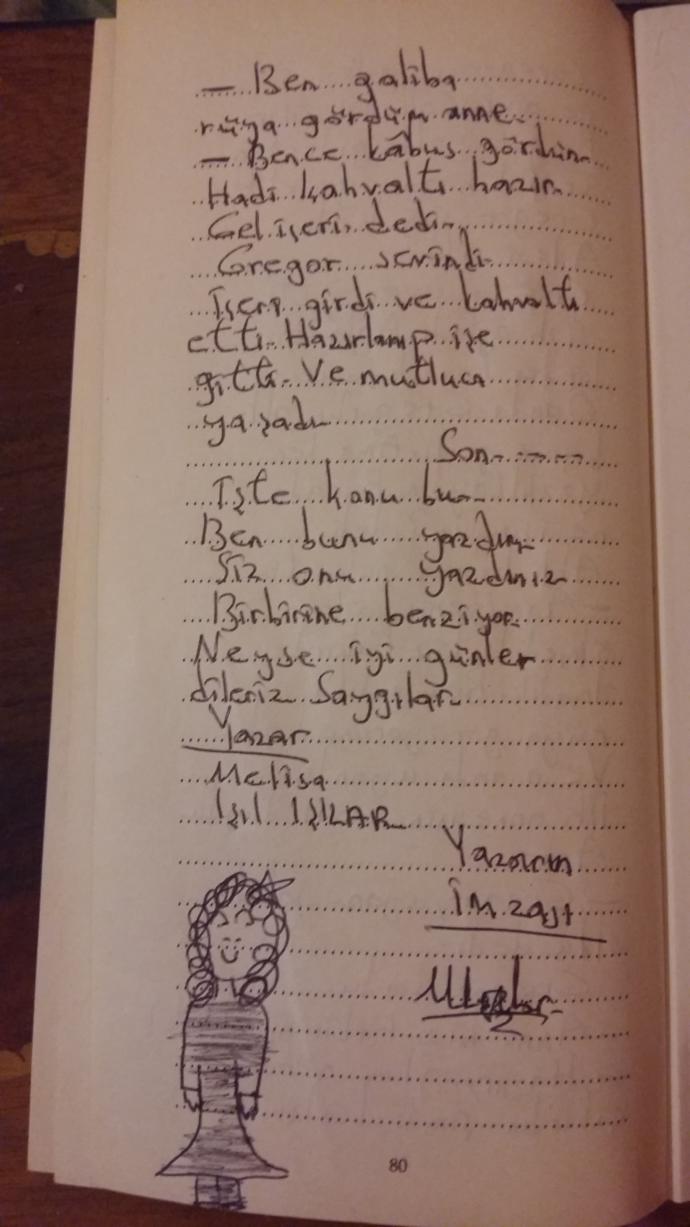 — Ben galiba
rüya gördüm anne.
— Bence kâbus gördün.
Hadi kahvaltı hazır.
Gel içeri, dedi.
Gregor sevindi.
İçeri girdi ve kahvaltı
etti. Hazırlanıp işe
gitti. Ve mutluca
yaşadı.
Son.
İşte konu bu.
Ben bunu yazdım.
Siz onu yazdınız
Birbirine benziyor.
Neyse iyi günler
dileriz Saygılar.
Yazar
Melisa
Işıl IŞILAR
Yazarın
İmzası
80